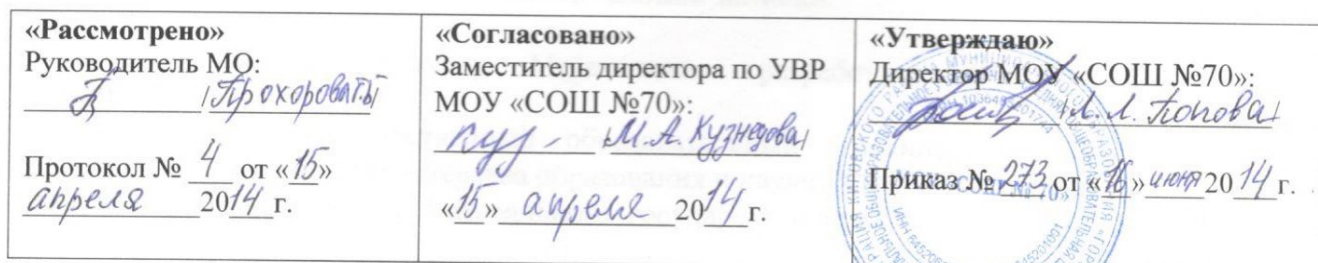 «Рассмотрено»
Руководитель МО:
/Прохорова
Протокол № 4 от «15»
апреля 2014 г.
«Согласовано»
Заместитель директора по УВР
МОУ «СОШ №70»:
Куз /М.А. Кузнецова/
«15» апреля 2014 г.
«Утверждаю»
Директор МОУ «СОШ №70»:
/Л.Л. Попова/
Приказ № 273 от «16» июня 2014 г.